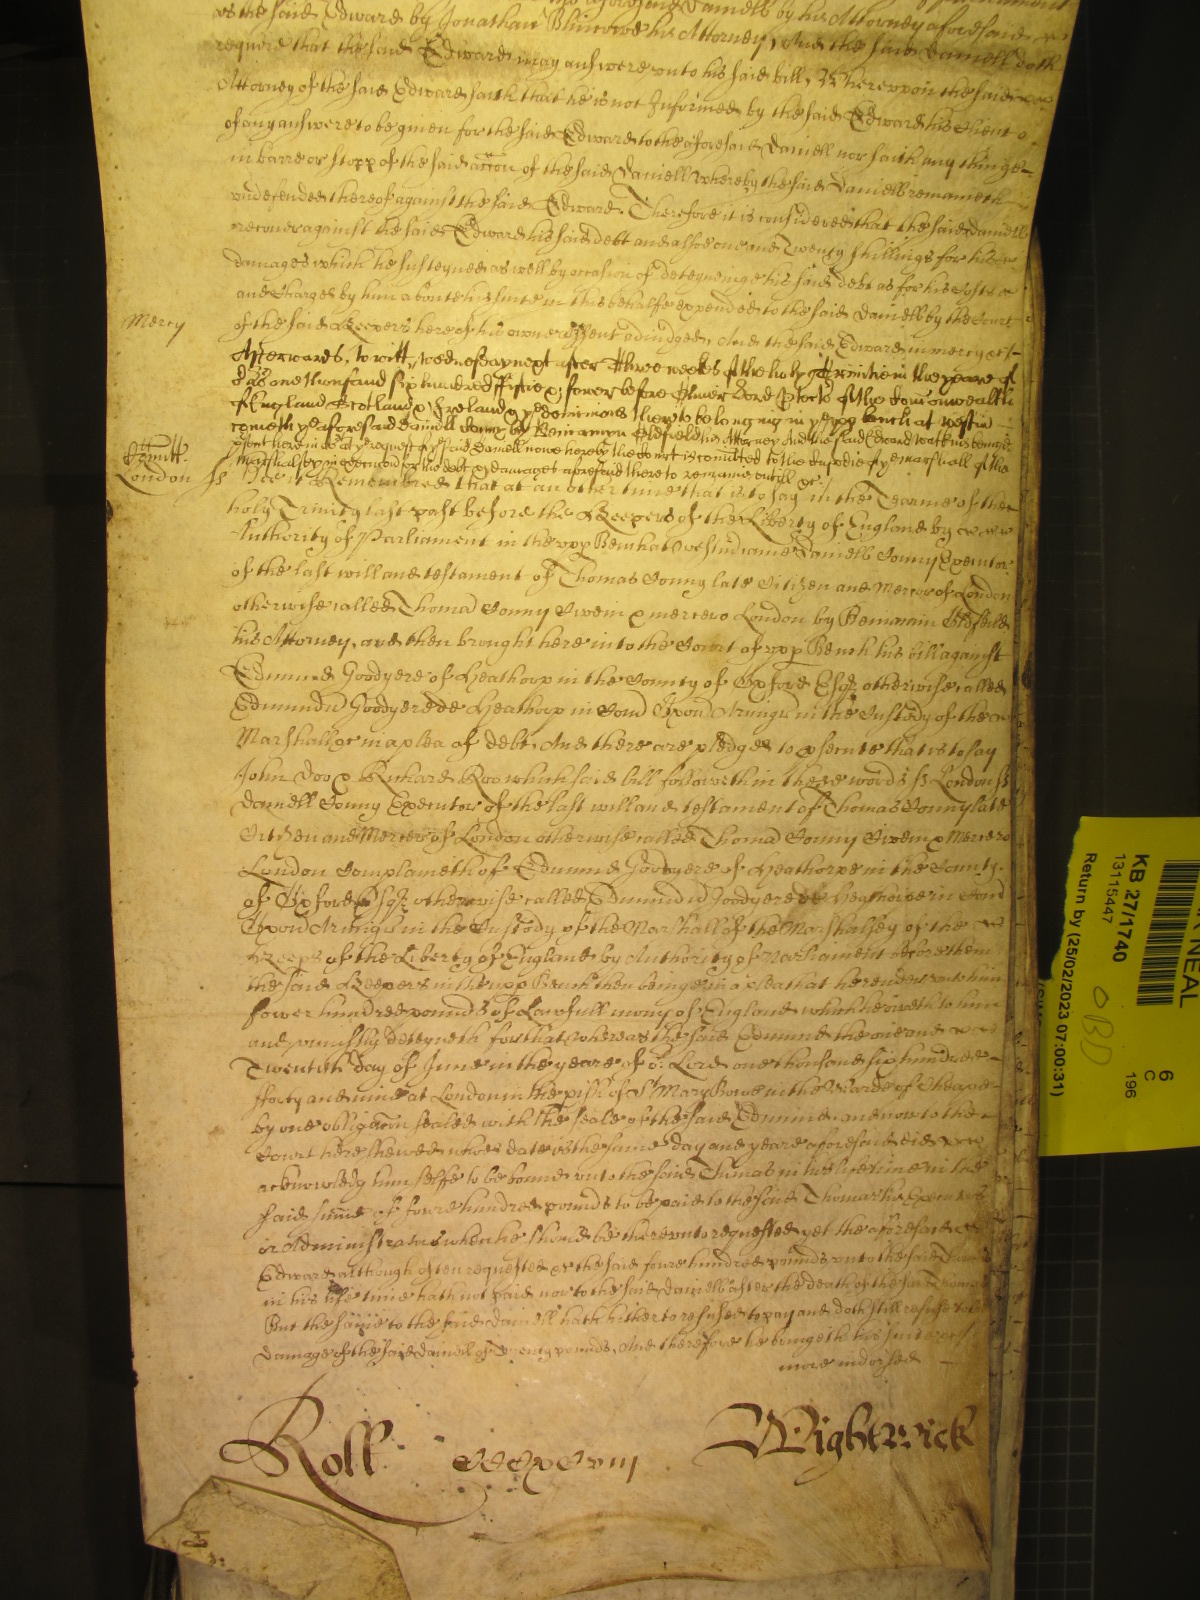 as the said Edward by Jonathan his Attorney, And the said Daniell doth
require that the said Edward may answere unto his said bill, Whereupon the said
Attorney of the said Edward saith that he is not Informed by the said Edward his Client
of any answere to be given for the said Edward to the aforesaid Daniell nor saith any thinge
in barre or stopp of the said accon of the said Daniell whereby the said Daniell remaineth
undefended thereof against the said Edward. Therefore it is considered that the said Daniell
recover against the said Edward his said debt and alsoe one and Twenty shillings for his
damages which he susteyned as well by occasion of deteyneinge his said debt as for his Costs
and Charges by him aboute his suite in this behalfe expended to the said Daniell by the Court
Mercy
of the said Keepers here of his owne assent adiudged, And the said Edward in mercy &c
Afterwards, to witt, wednesday next after three weekes of the holy Trinitie in the yeare of
one thousand six hundred fiftie & fower before Oliver Lord Protector of the Comonwealth
of England Scotland & Ireland & ye dominions thereto belonging in ye upp bench at westm
cometh ye aforesaid Daniell by Beniamyn Oldfeild his Attorney And the said Edward
here in at ye request of ye said Daniell nowe hereby the Court is comitted to the Custodie of ye marshall of the
Marshalsey in execucon for the debt & damages aforesaid there to remaine untill &c
London ss Bee it Remembred that at an other time that is to say in the Tearme of the
holy Trinity last past before the Keepers of the Liberty of England by
Authority of Parliament in the upp Bench at Westm came Daniell Executor
of the last will and testament of Thomas late Citizen and Mercer of London
otherwise called Thomas Civem & mercero London by Beniamin Oldfeild
his Attorney, and then brought here into the Court of upp Bench his bill against
Edmund Goodyere of Heathorp in the County of Oxford Esqr otherwise called
Edmundu Goodyere de Heathorp in Com Oxon Armigu in the Custody of the
Marshall &c in a plea of debt, And there are pledges to psecute that is to say
John Doo & Richard Roo which said bill followeth in these words ss London ss
Daniell Executor of the last will and testament of Thomas late
Citizen and Mercer of London otherwise called Thomas Civem & Mercero
London Complaineth of Edmund Goodyere of Heathorpe in the County
of Oxford Esqr otherwise called Edmundu Goodyere de Heythorpe in Com
Oxon Armigu in the Custody of the Marshall of the Marshalsey of the
keeps of the Liberty of England by Authority of Parliament before them
the said Keepers in the upp Bench then beinge in a plea that he render unto him
fower hundred pounds of Lawfull mony of England which he oweth to him
and uniustly deteyneth for that whereas the said Edmund the one and
Twentith day of June in the yeare of or Lord one thousand six hundred
fforty and nine at London in the pish of St Mary Bowe in the Warde of Cheape
by one obligacon sealed with the seale of the said Edmund and now to the
Court here shewed whose date is the same day and yeare aforesaid did
acknowledg him selfe to be bound unto the said Thomas in his life time in the
said summe of foure hundred pounds to be paid to the said Thomas his Executors
or Administrators when he should be thereunto requested, yet the aforesaid
Edward although often requested &c the said foure hundred pounds unto the said Thomas
in his life time hath not paid nor to the said Daniell after the death of the said Thomas
But the same to the said Daniell hath hitherto refused to pay and doth still refuse
damage of the said Daniell of Twenty pounds, And therefore he bringeth his suite
more indorsed
Roll
Wightwick
KB 27/1740
13115447
Return by (25/02/2023 07:00:31)
NEAL
6
C
196
OBD